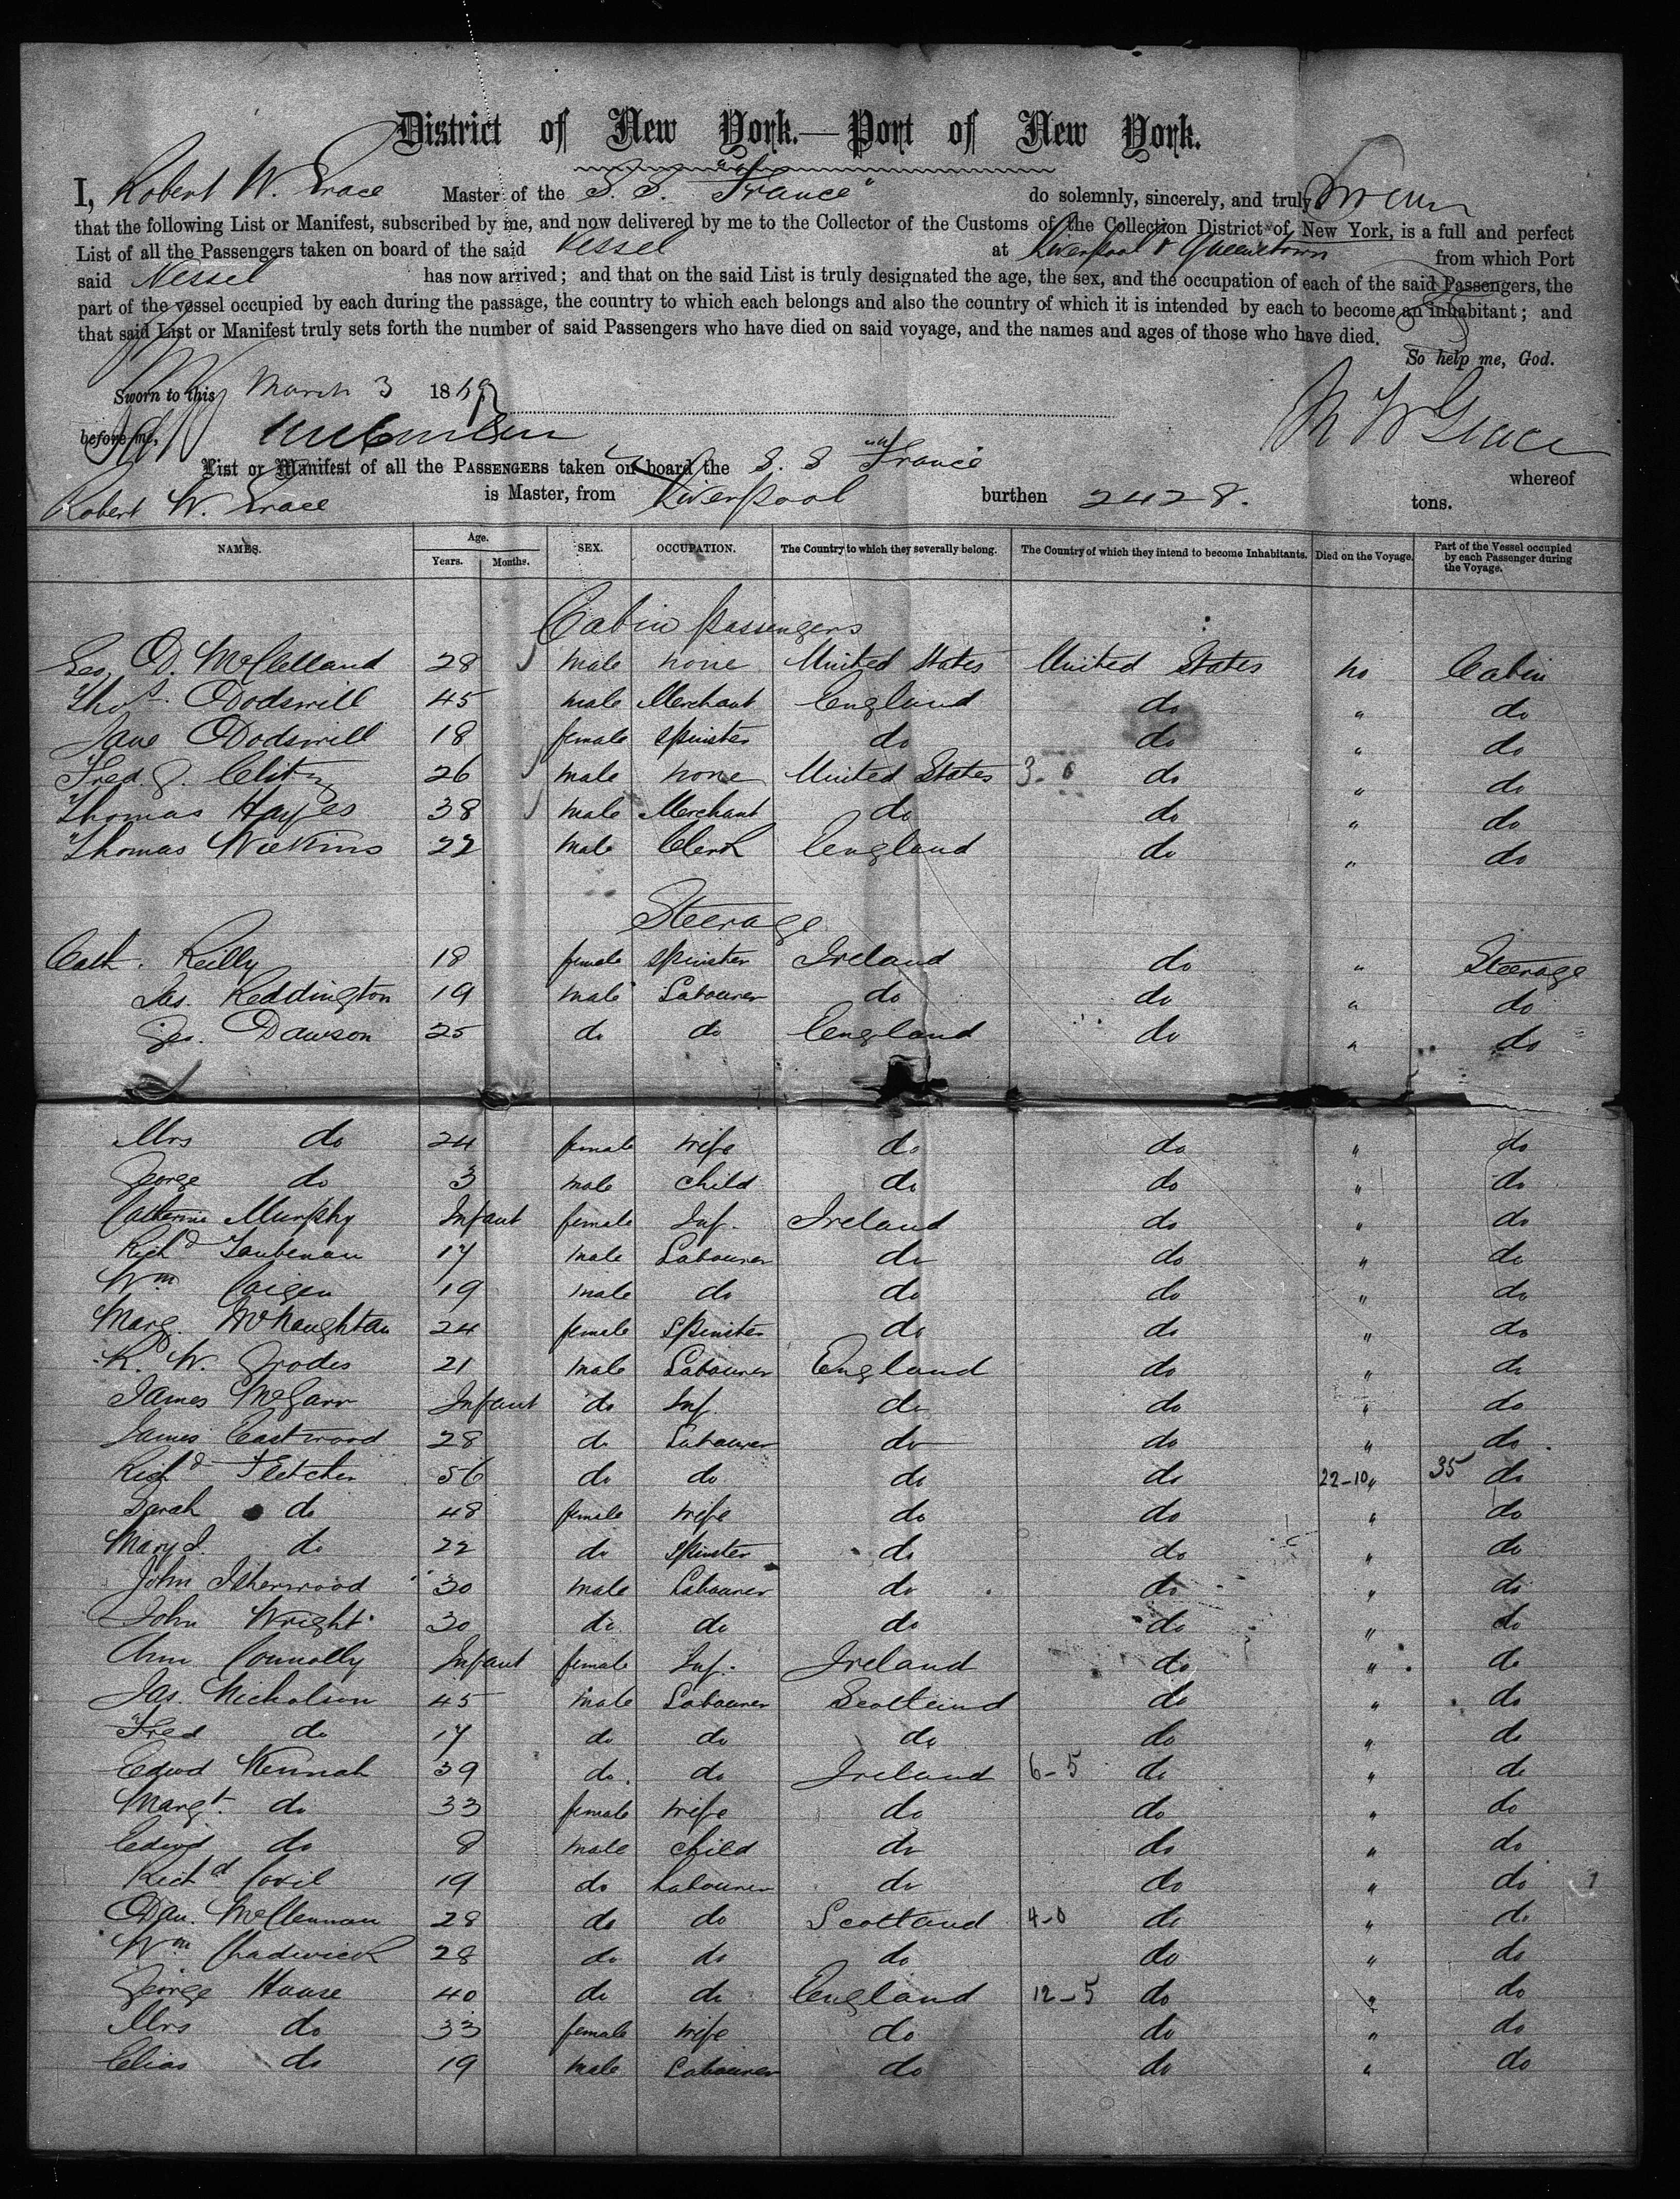 District of New York.—Port of New York.
I, Robert W. Grace Master of the S. S. "France" do solemnly, sincerely, and truly Swear
that the following List or Manifest, subscribed by me, and now delivered by me to the Collector of the Customs of the Collection District of New York, is a full and perfect
List of all the Passengers taken on board of the said Vessel at Liverpool & Queenstown from which Port
said Vessel has now arrived; and that on the said List is truly designated the age, the sex, and the occupation of each of the said Passengers, the
part of the vessel occupied by each during the passage, the country to which each belongs and also the country of which it is intended by each to become an inhabitant; and
that said List or Manifest truly sets forth the number of said Passengers who have died on said voyage, and the names and ages of those who have died.
So help me, God.
Sworn to this March 3 1869
before me,
R W Grace
List or Manifest of all the PASSENGERS taken on board the S. S "France" whereof
Robert W. Grace is Master, from Liverpool burthen 2428. tons.
NAMES. Age. Years. Months. SEX. OCCUPATION. The Country to which they severally belong. The Country of which they intend to become Inhabitants. Died on the Voyage. Part of the Vessel occupied by each Passenger during the Voyage.
Cabin Passengers
Geo. D. McClelland 28 male none United States United States no Cabin
Thos. Dodswill 45 male Merchant England do " do
Jane Dodswill 18 female spinster do do " do
Fred. J. 26 male none United States 3-0 do " do
Thomas Hayes 38 male Merchant do do " do
Thomas Wilkins 22 male Clerk England do " do
Steerage
Cath. Reilly 18 female spinster Ireland do " Steerage
Jas. Reddington 19 male Labourer do do " do
Geo. Dawson 25 do do England do " do
Mrs do 24 female wife do do " do
George do 3 male child do do " do
Catherine Murphy Infant female Inf. Ireland do " do
Richd 17 male Labourer do do " do
Wm 19 male do do do " do
Marg. McNaughtan 24 female Spinster do do " do
R. W. Grodes 21 male Labourer England do " do
James McGarr Infant do Inf. do do " do
James Eastwood 28 do Labourer do do " do
Richd Fletcher 56 do do do do 22-10 " 35 do
Sarah do 48 female wife do do " do
Mary J. do 22 do Spinster do do " do
John Isherwood 30 male Labourer do do " do
John Wright 30 do do do do " do
Ann Connolly Infant female Inf. Ireland do " do
Jas. Nicholson 45 male Labourer Scotland do " do
Fred do 17 do do do do " do
Edwd Kennah 39 do. do Ireland 6-5 do " do
Margt. do 33 female wife do do " do
Edwd do 8 male child do do " do
Richd Coxil 19 do Labourer do do " do
Dan. McClennan 28 do do Scotland 4-0 do " do
Wm Chadwick 28 do do do do " do
George House 40 do do England 12-5 do " do
Mrs do 33 female wife do do " do
Elias do 19 male Labourer do do " do